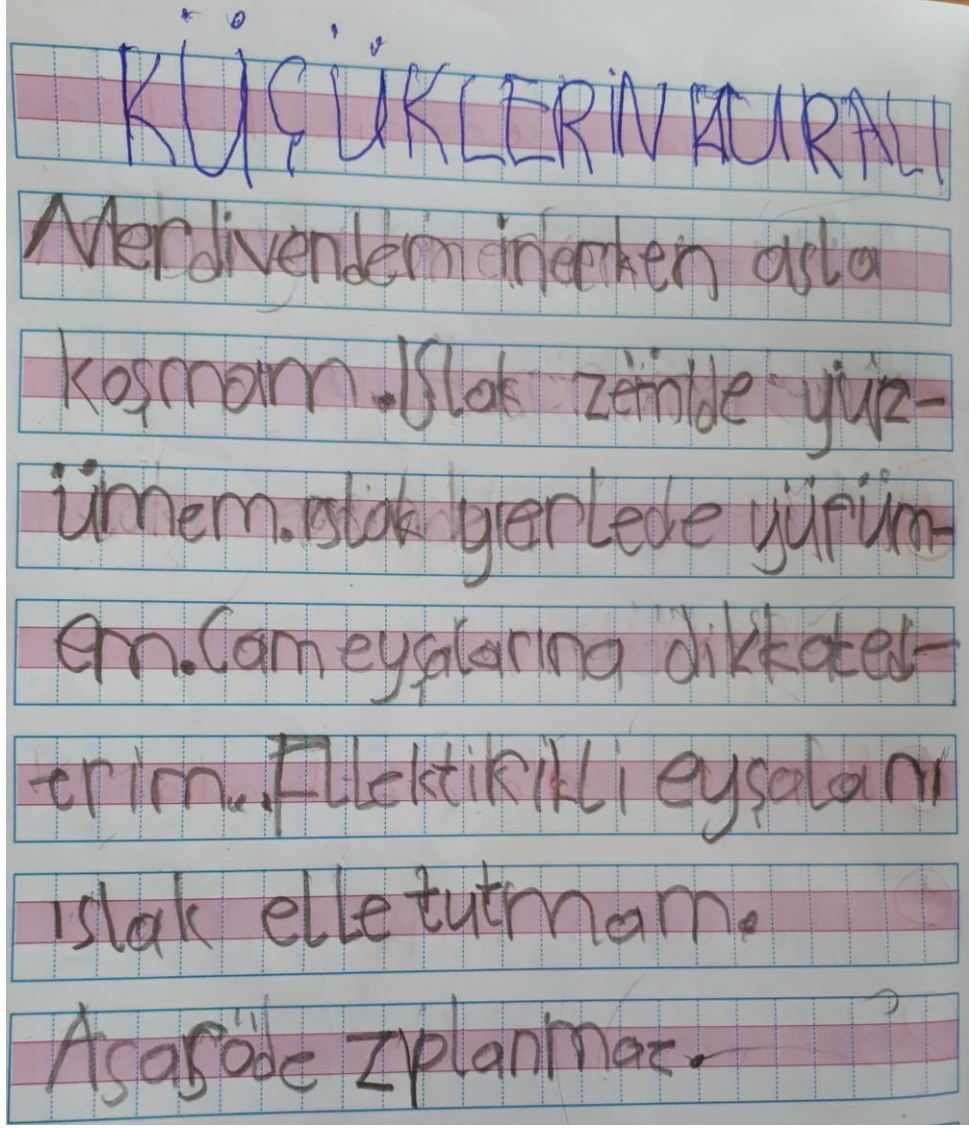 KÜÇÜKLERİN KURALI
Merdivenden inerken asla
koşmam. Islak zeminde yür-
ümem. ıslak yerlede yürüm-
em. Cam eyşalarına dikkated-
erim. Ellektikikli eyşalanı
ıslak elle tutmam.
zıplanmaz.